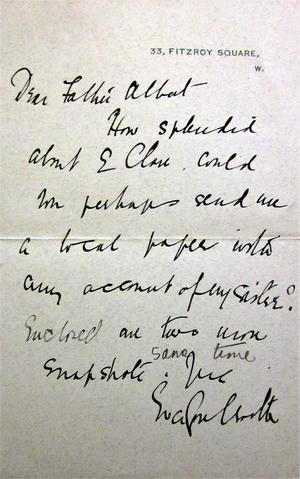 33, FITZROY SQUARE,
W.
Dear Father Albert
How splendid
about E Clare. could
you perhaps send me
a local paper with
any account of my sister?
Enclosed are two more
same time
snapshots.
Eva Gore Booth